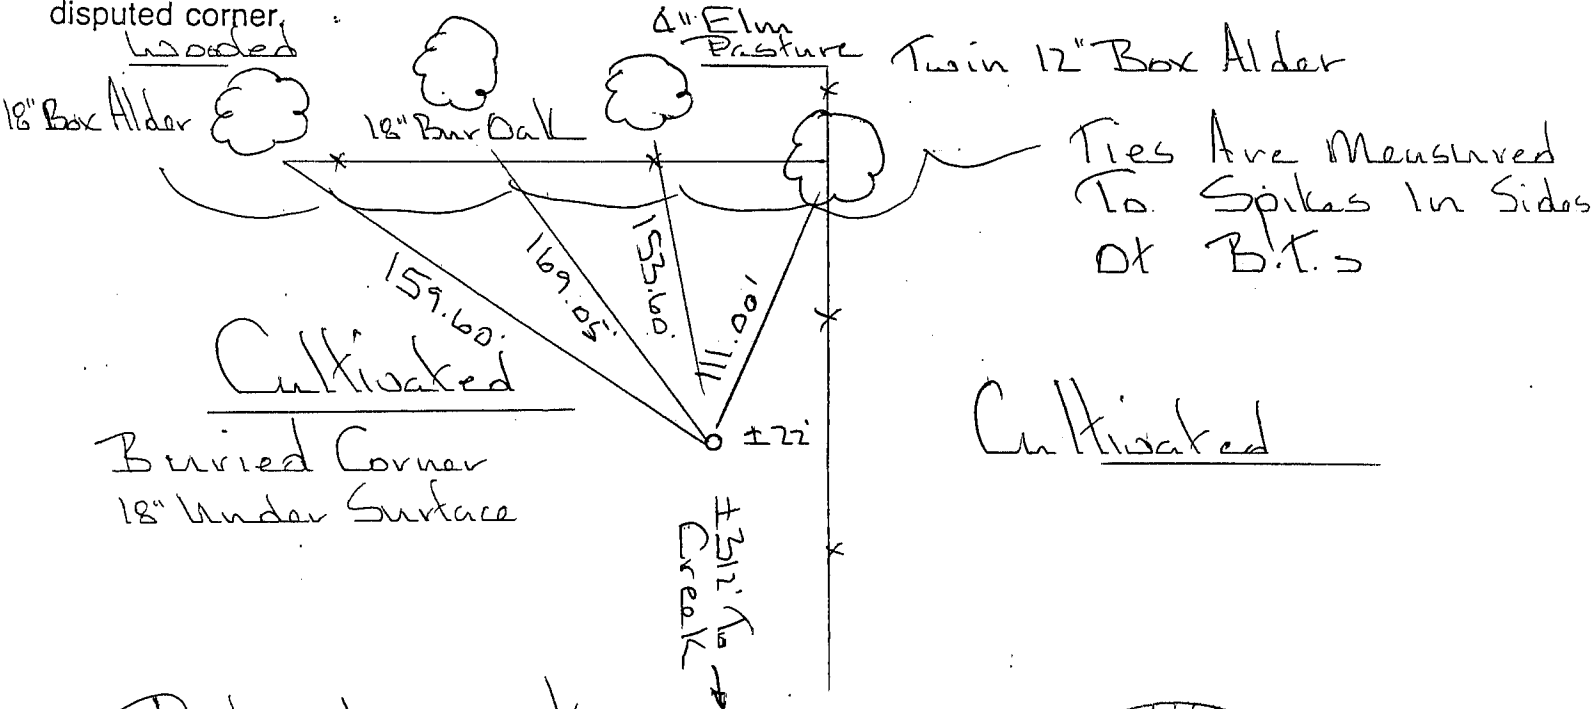 disputed corner.
Wooded
4" Elm
Pasture
Twin 12" Box Alder
18" Box Alder
18" Bur Oak
Ties Are Measured
To Spikes In Sides
Of B.T.s
159.60'
169.05'
153.60'
111.00'
Cultivated
Buried Corner
18" Under Surface
±22'
Cultivated
±312' To
Creek